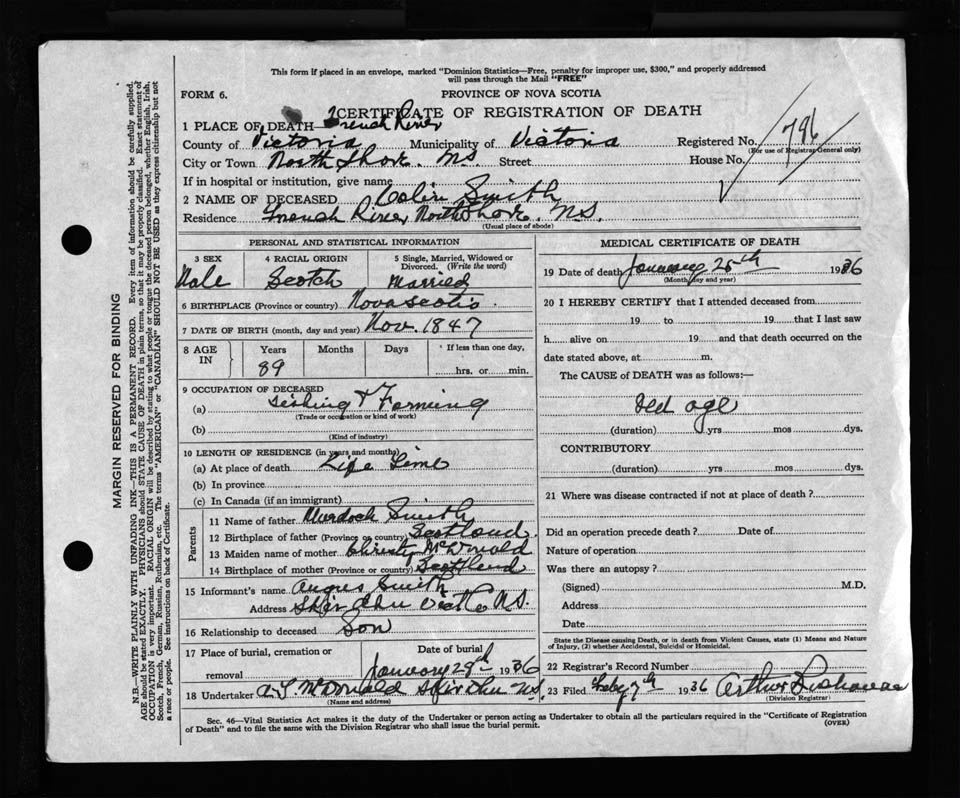 This form if placed in an envelope, marked "Dominion Statistics—Free, penalty for improper use, $300," and properly addressed
will pass through the Mail "FREE"
FORM 6.
PROVINCE OF NOVA SCOTIA
CERTIFICATE OF REGISTRATION OF DEATH
1 PLACE OF DEATH— French River
County of Victoria Municipality of Victoria Registered No. 796
(For use of Registrar General only)
City or Town North Shore. N.S. Street House No.
If in hospital or institution, give name
2 NAME OF DECEASED Colin Smith
Residence French River North Shore. N.S.
(Usual place of abode)
PERSONAL AND STATISTICAL INFORMATION
3 SEX 4 RACIAL ORIGIN 5 Single, Married, Widowed or
Divorced. (Write the word)
Male Scotch Married
6 BIRTHPLACE (Province or country) Nova Scotia
7 DATE OF BIRTH (month, day and year) Nov. 1847
8 AGE IN Years Months Days If less than one day,
89 hrs. or min.
9 OCCUPATION OF DECEASED
(a) Fishing & Farming
(Trade or occupation or kind of work)
(b)
(Kind of industry)
10 LENGTH OF RESIDENCE (in years and months)
(a) At place of death Life Time
(b) In province
(c) In Canada (if an immigrant)
Parents
11 Name of father Murdoch Smith
12 Birthplace of father (Province or country) Scotland.
13 Maiden name of mother Christy McDonald
14 Birthplace of mother (Province or country) Scotland
15 Informant's name Angus Smith
Address Skir Dhu Vict Co N.S.
16 Relationship to deceased Son
17 Place of burial, cremation or removal Date of burial
January 29th 1936
18 Undertaker McDonald Skir Dhu N.S.
(Name and address)
MEDICAL CERTIFICATE OF DEATH
19 Date of death January 25th 1936
(Month, day and year)
20 I HEREBY CERTIFY that I attended deceased from
19 to 19 that I last saw
h alive on 19 and that death occurred on the
date stated above, at m.
The CAUSE of DEATH was as follows:—
Old age
(duration) yrs mos dys.
CONTRIBUTORY
(duration) yrs mos dys.
21 Where was disease contracted if not at place of death?
Did an operation precede death? Date of
Nature of operation
Was there an autopsy?
(Signed) M.D.
Address
Date
State the Disease causing Death, or in death from Violent Causes, state (1) Means and Nature
of Injury, (2) whether Accidental, Suicidal or Homicidal.
22 Registrar's Record Number
23 Filed 7th 1936 Arthur
(Division Registrar)
Sec. 46—Vital Statistics Act makes it the duty of the Undertaker or person acting as Undertaker to obtain all the particulars required in the "Certificate of Registration
of Death" and to file the same with the Division Registrar who shall issue the burial permit. (OVER)
MARGIN RESERVED FOR BINDING
N.B.—WRITE PLAINLY WITH UNFADING INK—THIS IS A PERMANENT RECORD. Every item of information should be carefully supplied.
AGE should be stated EXACTLY. PHYSICIANS should STATE CAUSE OF DEATH in plain terms, so that it may be properly classified. Exact statement of
OCCUPATION is very important. RACIAL ORIGIN will be described by stating to what people or tongue the deceased person belonged, whether English, Irish,
Scotch, French, German, Russian, Ruthenian, etc. The terms "AMERICAN" or "CANADIAN" SHOULD NOT BE USED as they express citizenship but not
a race or people. See instructions on back of Certificate.